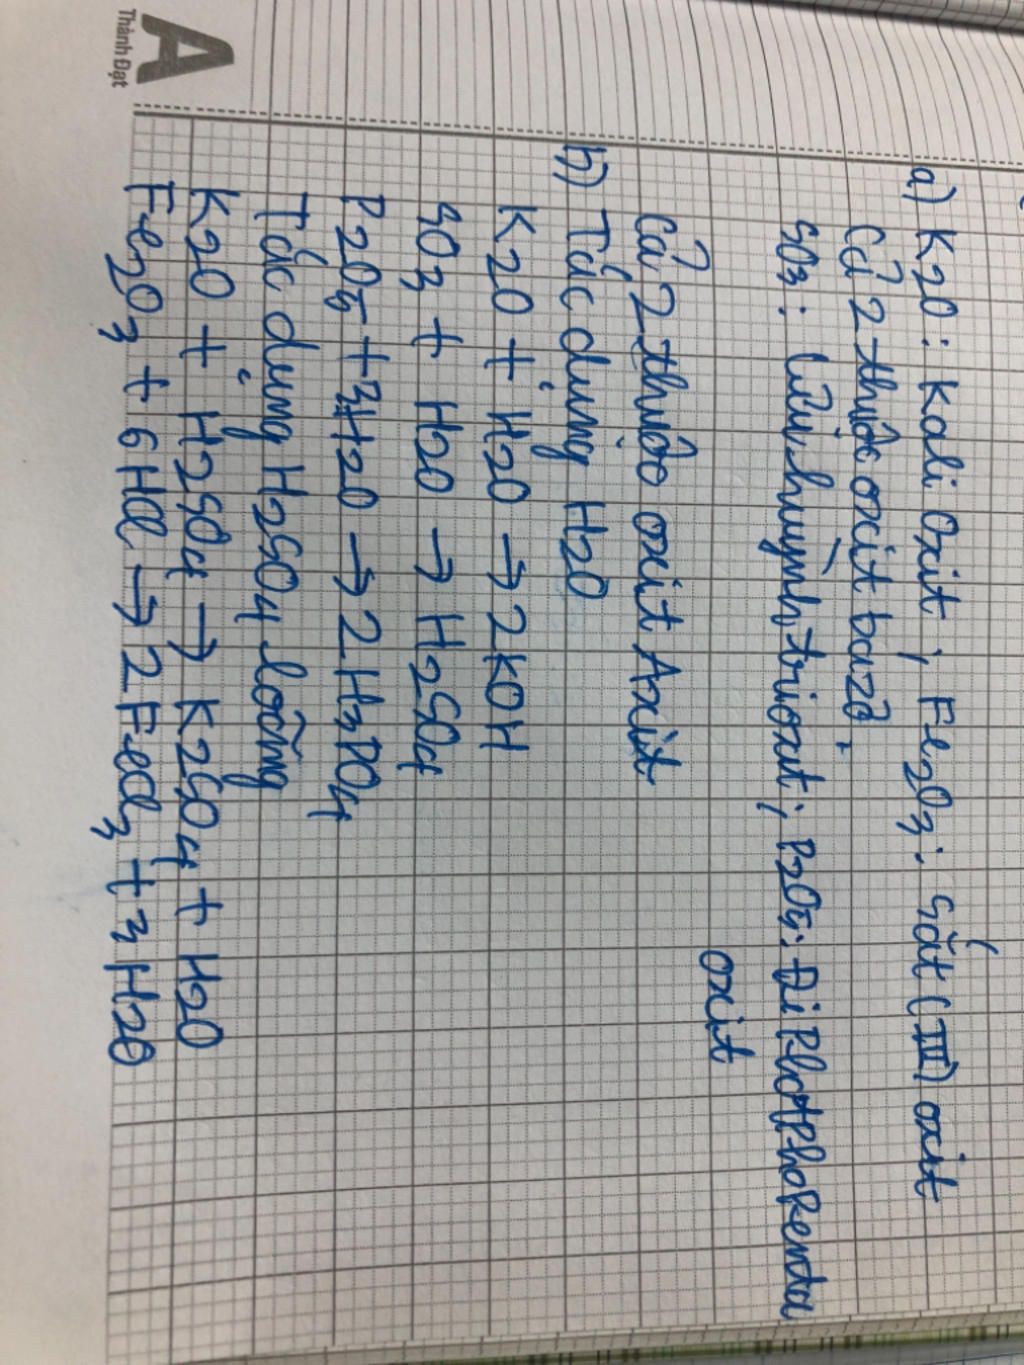 a) K2O: Kali Oxit ; Fe2O3: sắt (III) oxit
Cả 2 thuộc oxit bazơ
SO3: Lưu huỳnh trioxit ; P2O5: Đi Photpho Penta
oxit
Cả 2 thuộc oxit Axit
b) Tác dụng H2O
K2O + H2O → 2KOH
SO3 + H2O → H2SO4
P2O5 + 3H2O → 2H3PO4
Tác dụng H2SO4 loãng
K2O + H2SO4 → K2SO4 + H2O
Fe2O3 + 6HCl → 2FeCl3 + 3H2O
A
Thành Đạt